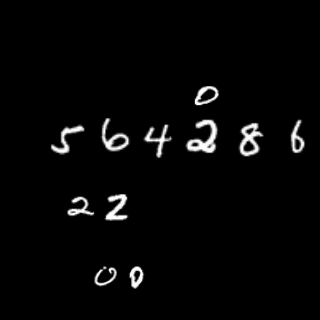 0
5 6 4 2 8 6
2 2
0 0